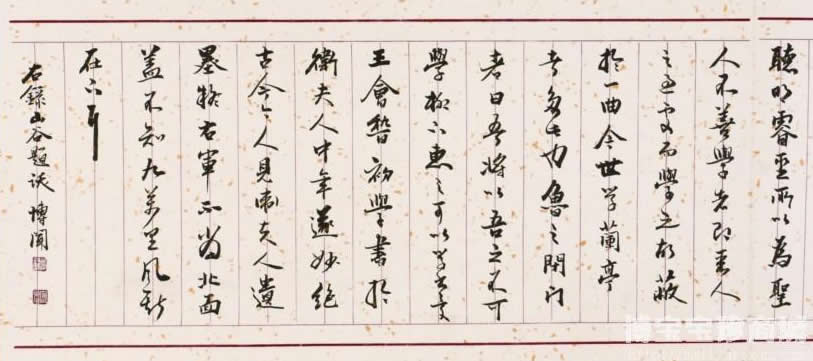 聰明睿聖所以為聖
人不善學者即聖人
之過處而學之故蔽
於一曲今世學蘭亭
者多此也魯之閉門
者曰吾將以吾之不可
學柳下惠之可以學書矣
王會稽初學書於
衛夫人中年遂妙絕
古今今人見衛夫人遺
墨疑右軍不當北面
蓋不知九萬里風斯
在下耳
右錄山谷題跋 博聞